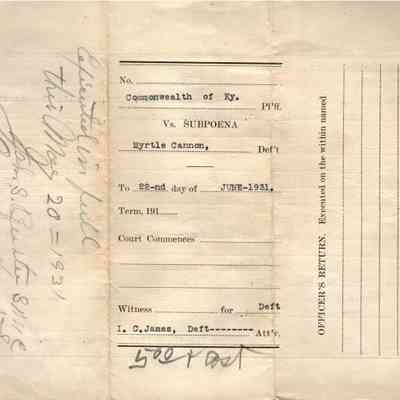 Executed in full
this May 20 = 1931
No.
Commonwealth of Ky.
Pl'ff.
Vs. SUBPOENA
Myrtle Cannon, Def't
To 22-nd day of JUNE-1931.
Term, 191
Court Commences
Witness for Deft
I. C. James, Deft-------- Att'y.
50¢ + cost
OFFICER'S RETURN. Executed on the within named